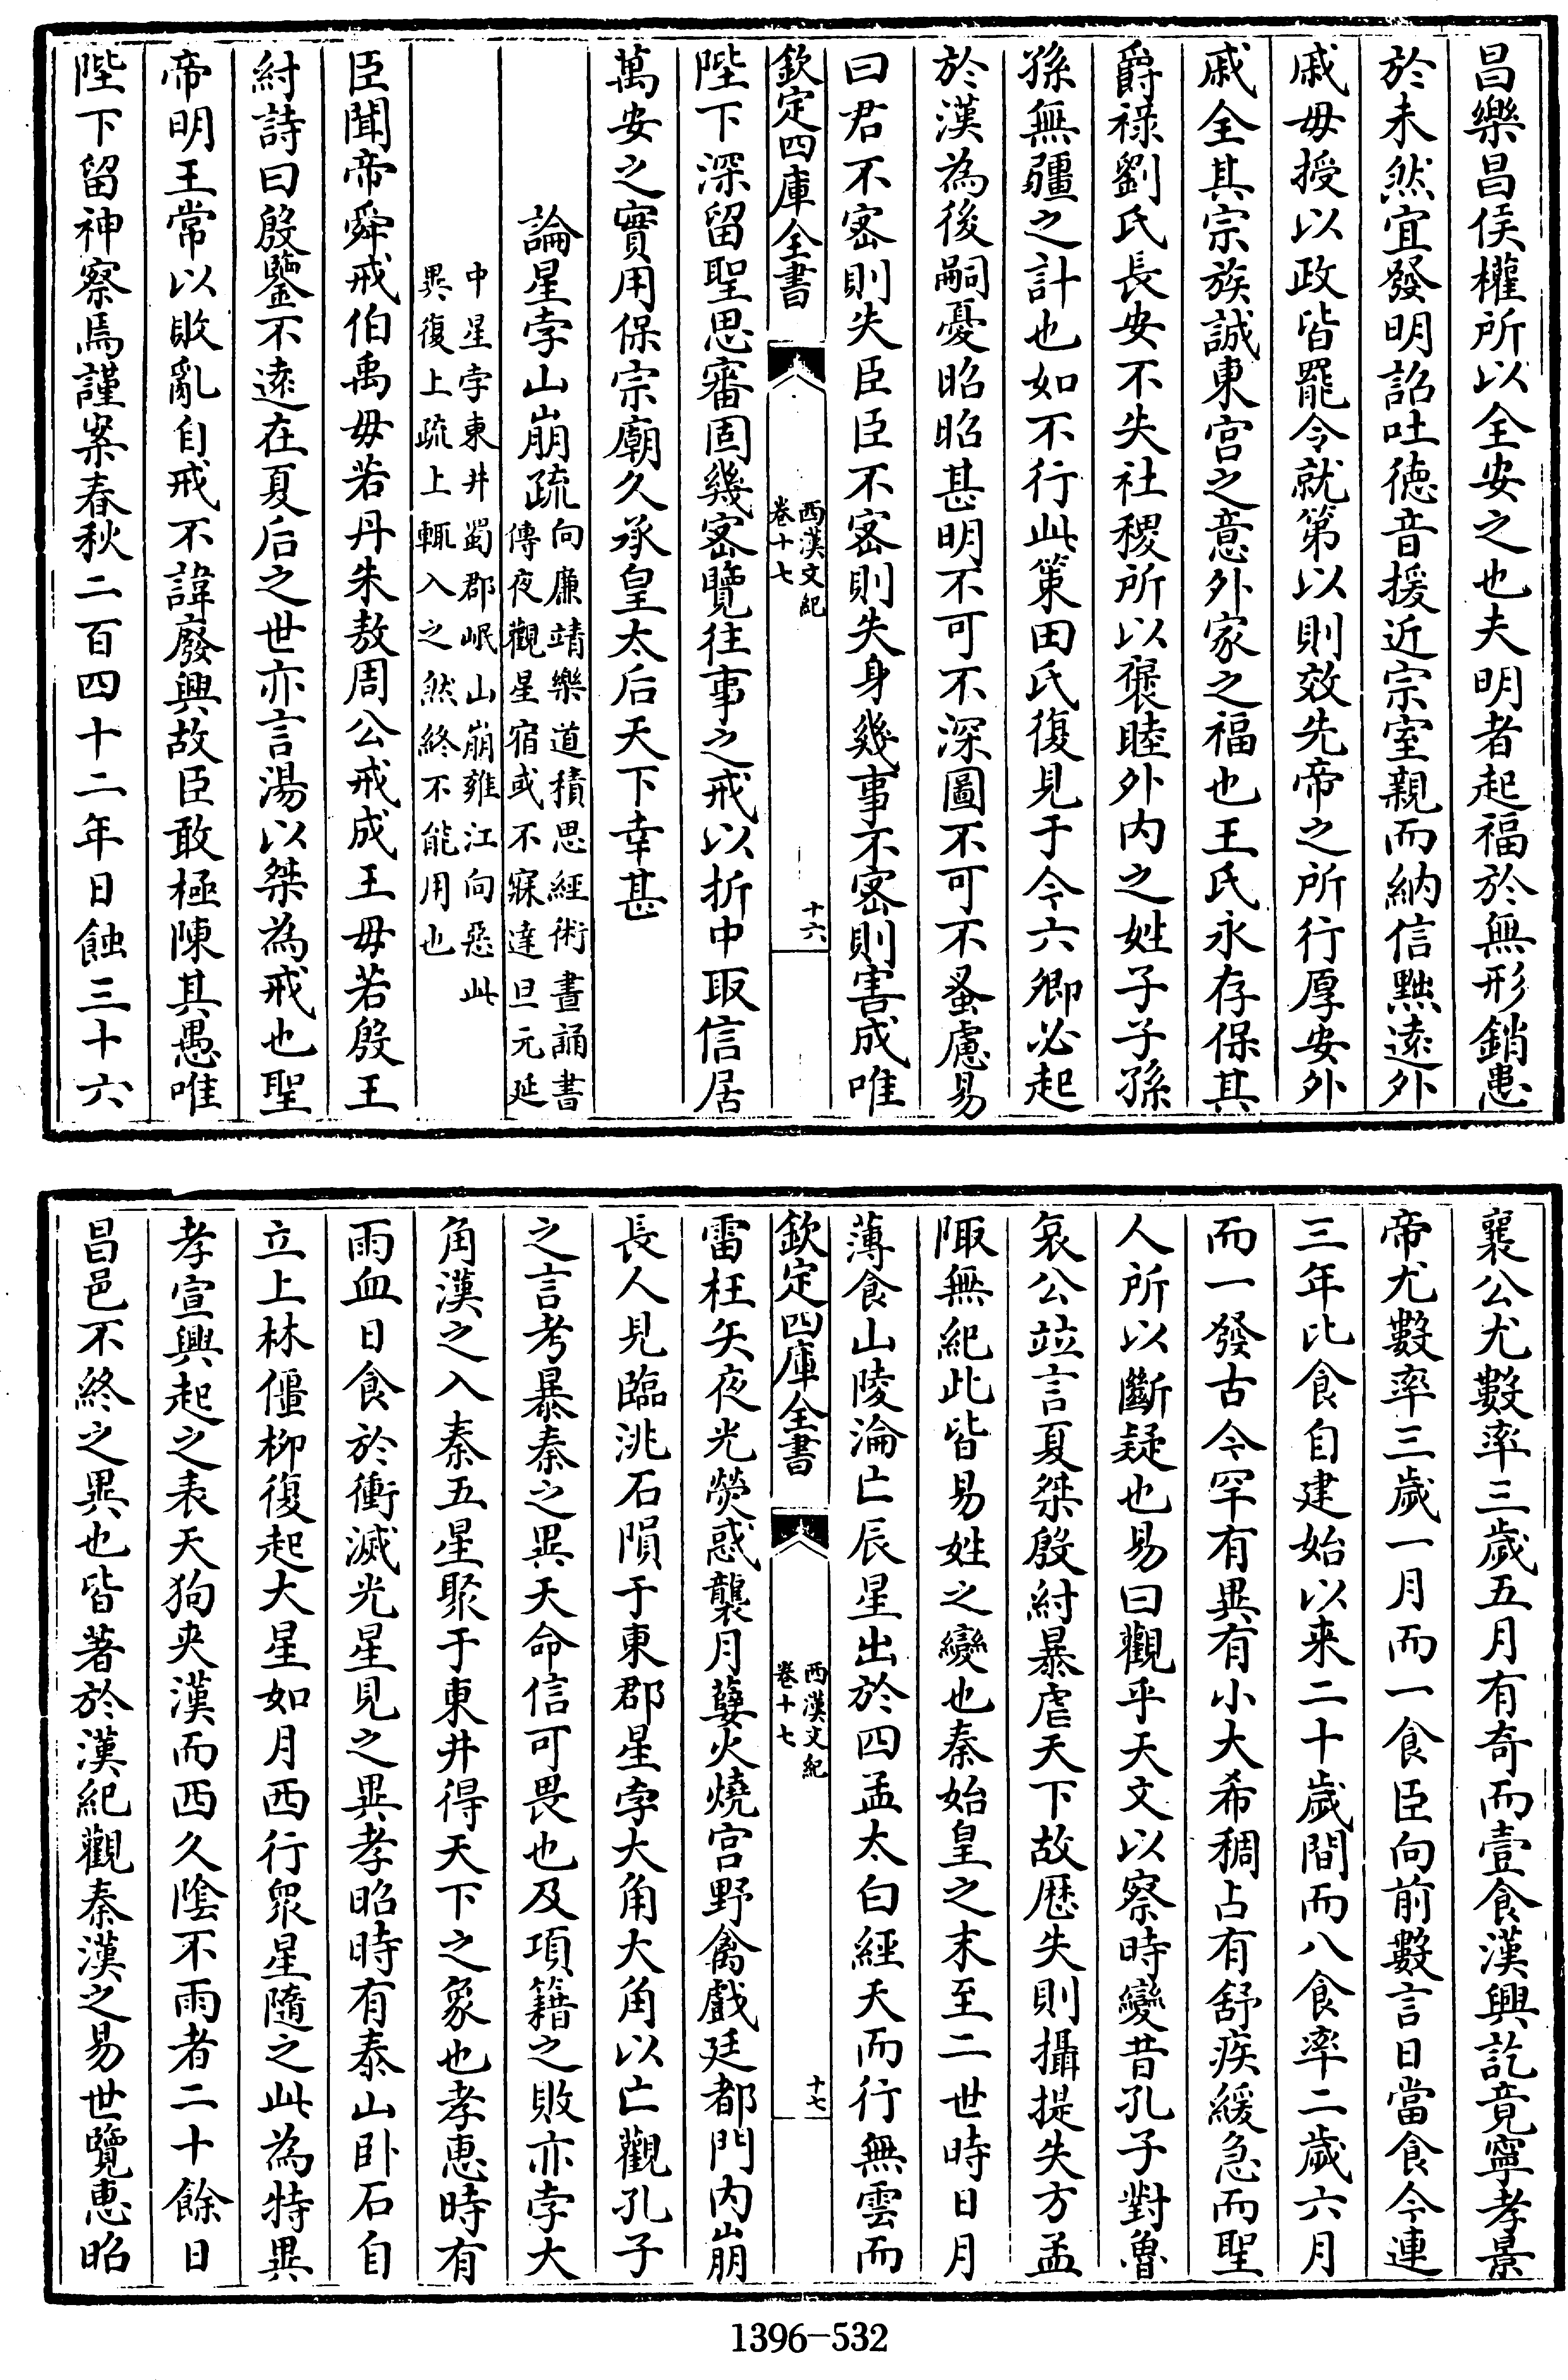 昌樂昌侯權所以全安之也夫明者起福於無形銷患
於未然宜發明詔吐徳音援近宗室親而納信黜逺外
戚毋授以政皆罷令就第以則效先帝之所行厚安外
戚全其宗族誠東宫之意外家之福也王氏永存保其
爵禄劉氏長安不失社稷所以褒睦外内之姓子子孫
孫無疆之計也如不行此䇿田氏復見于今六卿必起
於漢為後嗣憂昭昭甚明不可不深圖不可不蚤慮易
曰君不宻則失臣臣不宻則失身幾事不宻則害成唯
欽定四庫全書
西漢文紀
卷十七
十六
陛下深留聖思審固幾宻覽往事之戒以折中取信居
萬安之實用保宗廟久承皇太后天下幸甚
論星孛山崩疏
向亷靖樂道積思經術晝誦書
傳夜觀星宿或不寐達旦元延
中星孛東井蜀郡岷山崩雍江向惡此
異復上疏上輒入之然終不能用也
臣聞帝舜戒伯禹毋若丹朱敖周公戒成王毋若殷王
紂詩曰殷鑒不逺在夏后之世亦言湯以桀為戒也聖
帝明王常以敗亂自戒不諱廢興故臣敢極陳其愚唯
陛下留神察焉謹案春秋二百四十二年日蝕三十六
襄公尤數率三歲五月有奇而壹食漢興訖竟寧孝景
帝尤數率三歲一月而一食臣向前數言日當食今連
三年比食自建始以来二十歲間而八食率二歲六月
而一發古今罕有異有小大希稠占有舒疾緩急而聖
人所以斷疑也易曰觀乎天文以察時變昔孔子對魯
哀公竝言夏桀殷紂暴虐天下故厯失則攝提失方孟
陬無紀此皆易姓之變也秦始皇之末至二世時日月
薄食山陵淪亡辰星出於四孟太白經天而行無雲而
欽定四庫全書
西漢文紀
卷十七
十七
雷枉矢夜光熒惑襲月孽火燒宫野禽戲廷都門内崩
長人見臨洮石隕于東郡星孛大角大角以亡觀孔子
之言考暴秦之異天命信可畏也及項籍之敗亦孛大
角漢之入秦五星聚于東井得天下之象也孝惠時有
雨血日食於衝滅光星見之異孝昭時有泰山卧石自
立上林僵柳復起大星如月西行衆星隨之此為特異
孝宣興起之表天狗夾漢而西久隂不雨者二十餘日
昌邑不終之異也皆著於漢紀觀秦漢之易世覽惠昭
1396-532